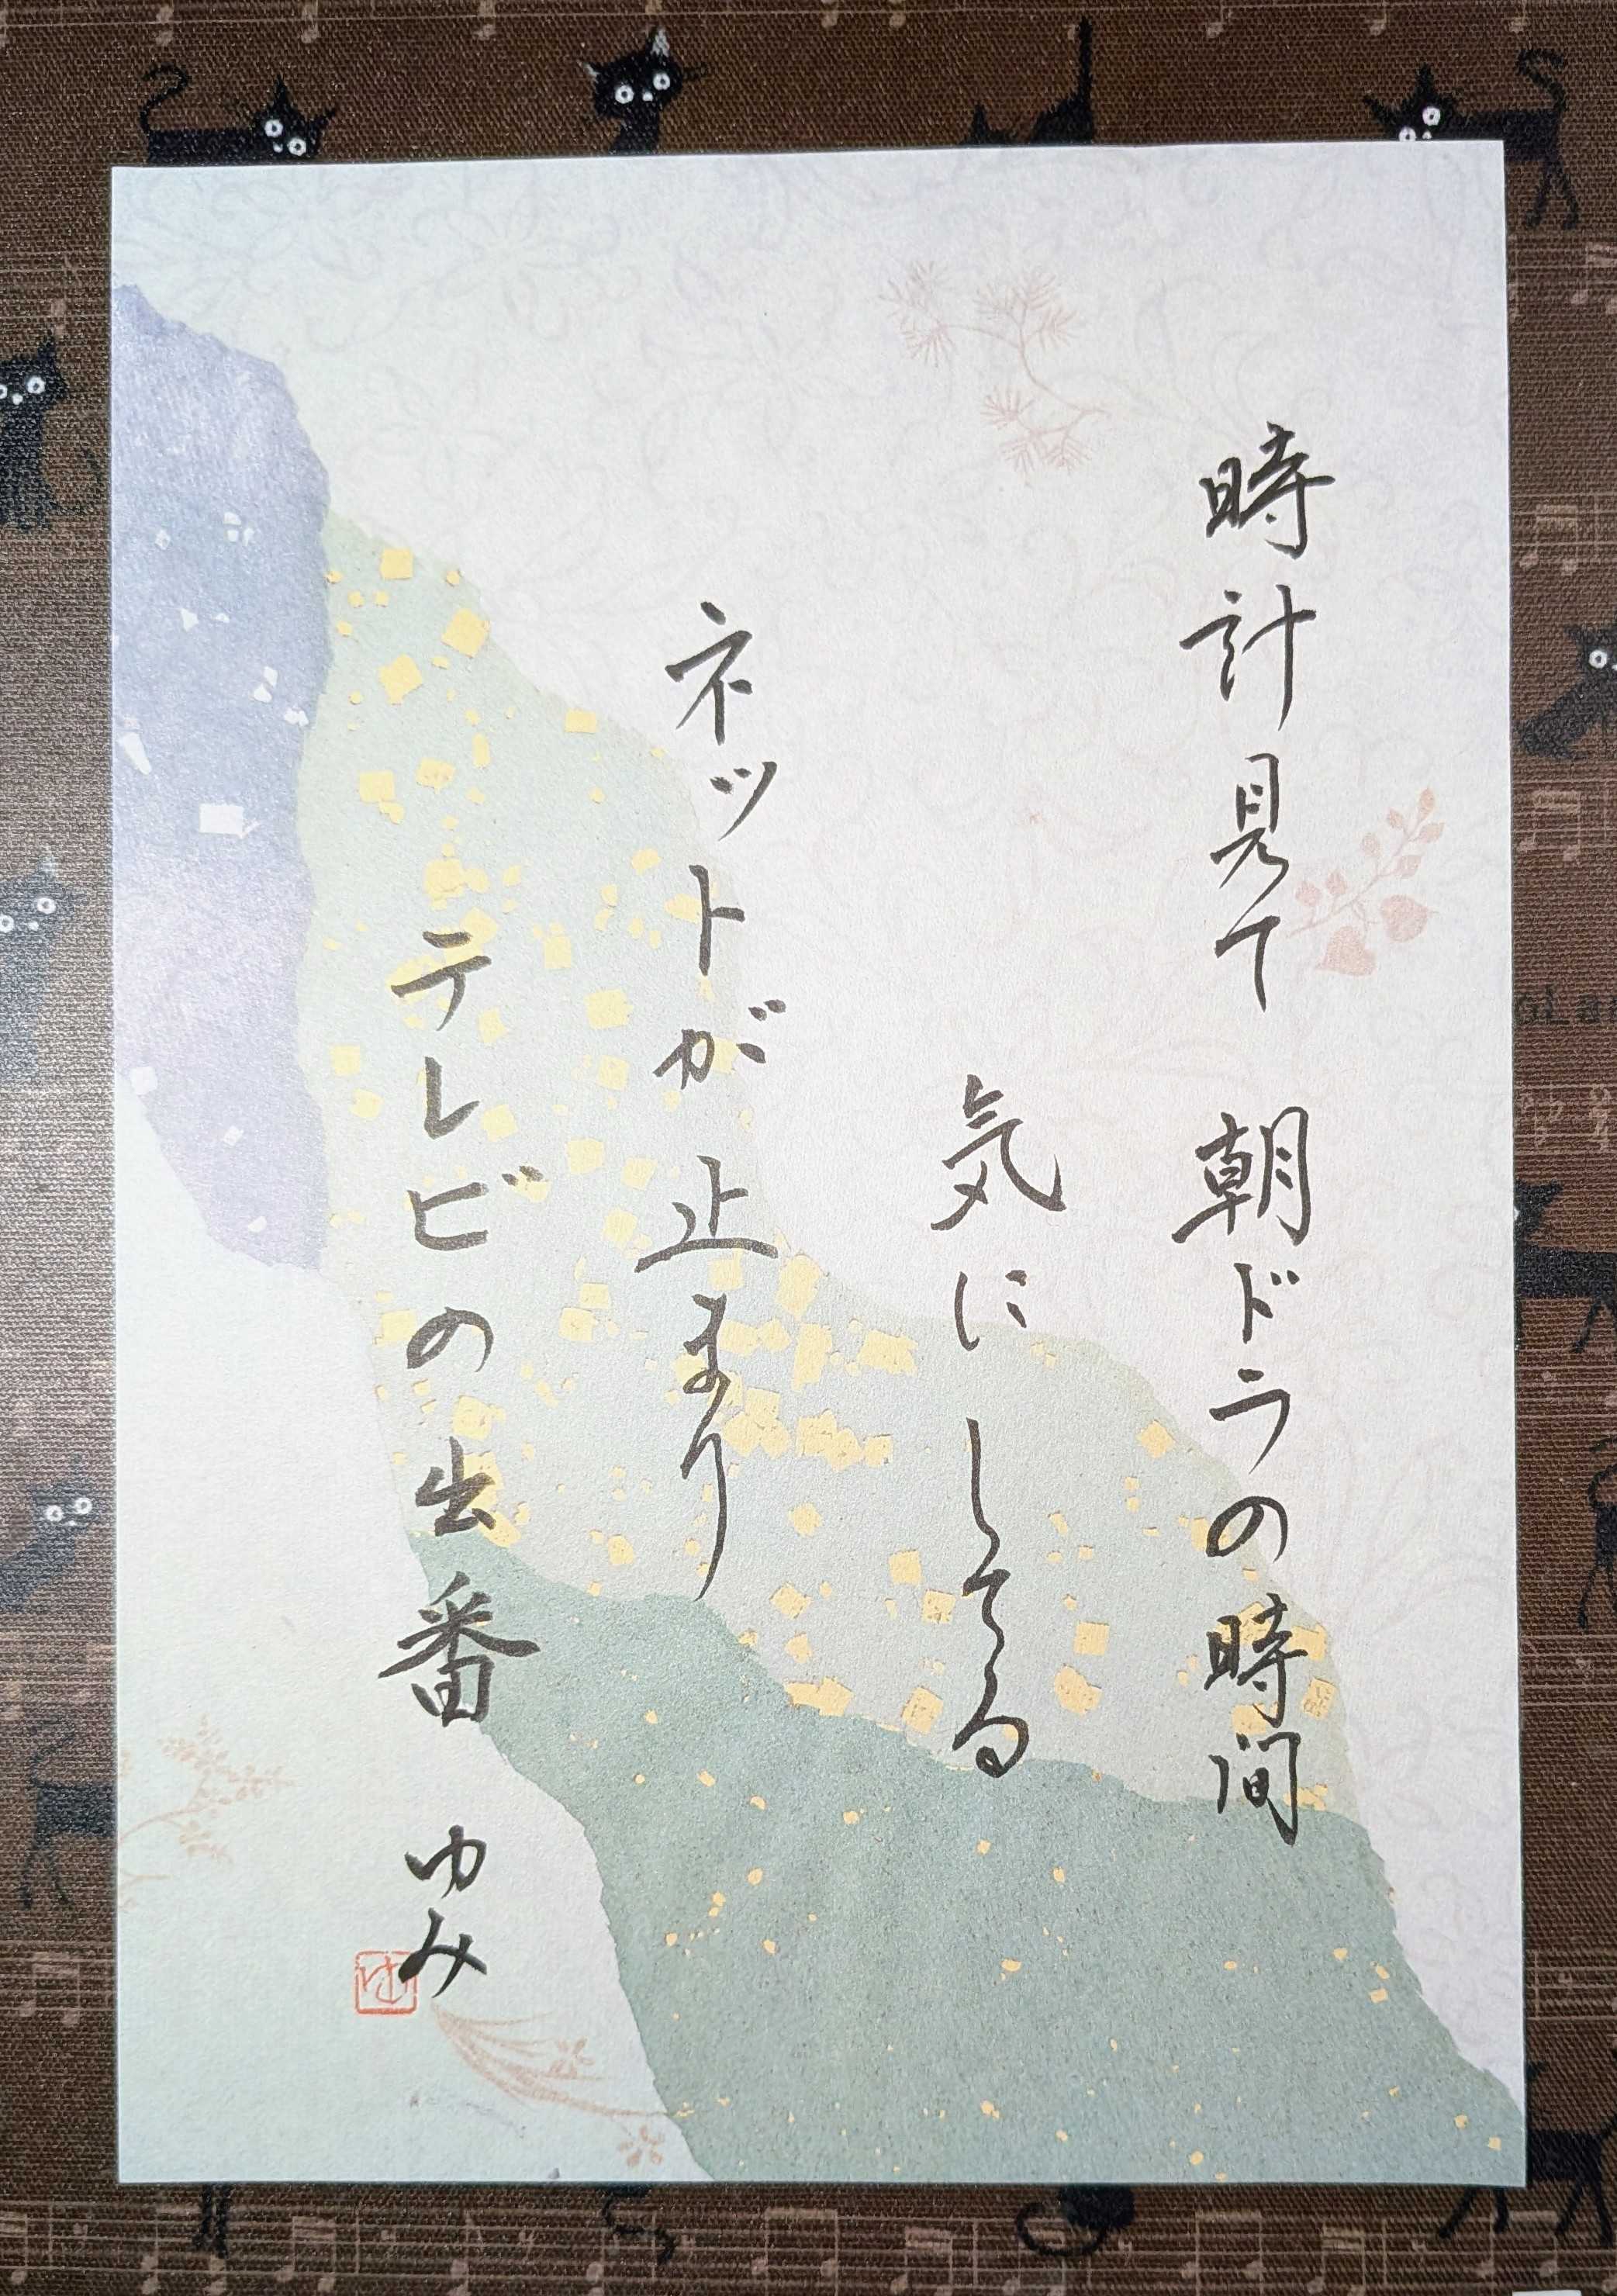 時計見て 朝ドラの時間
気に してる
ネットが 止まり
テレビの出番 ゆみ
ゆ